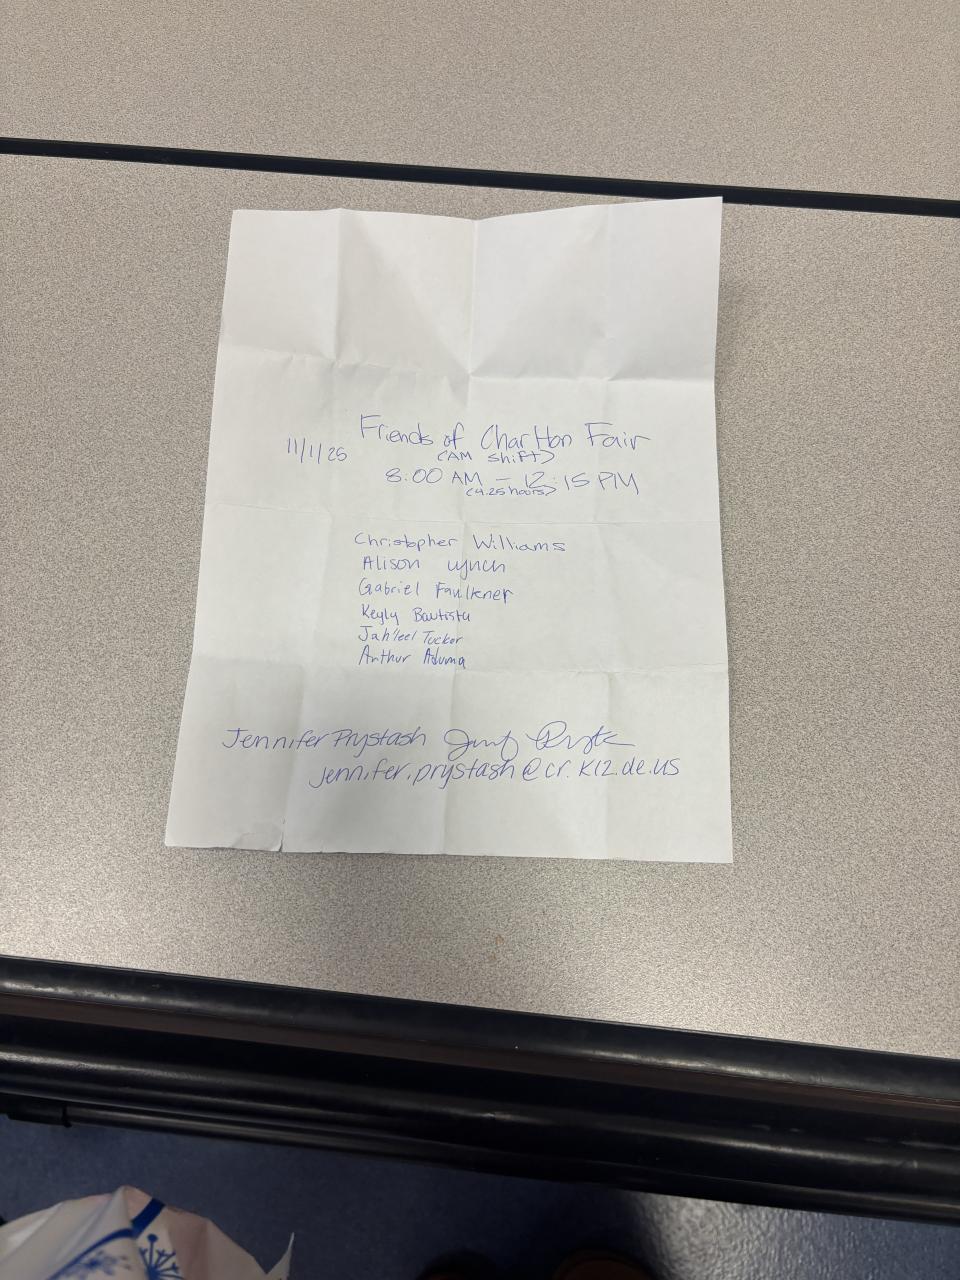 11/1/25 Friends of Charlton Fair
(AM shift)
8:00 AM – 12:15 PM
(4.25 hours)
Christopher Williams
Alison Lynch
Gabriel Faulkner
Keyly Bautista
Jah'leel Tucker
Arthur Aduma
Jennifer Prystash
jennifer.prystash@cr.k12.de.us